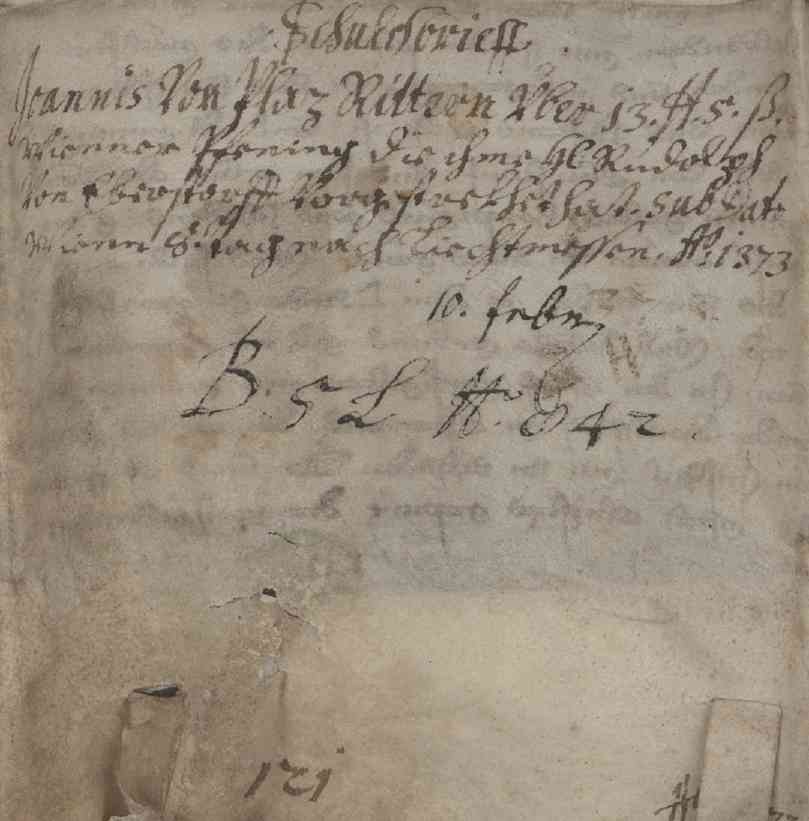 Schuldbrieff.
Joannis Von Plaz Rittern Vber 13. ℔. 5. ß.
Wienner Pfening die ihme Hl Rudolph
Von Eberstorff Vorgestrekhet hat. Sub dato
Wienn 8. tag nach Liechtmessen. Aº. 1373
10. febr
B. 5 L N. 842.
121